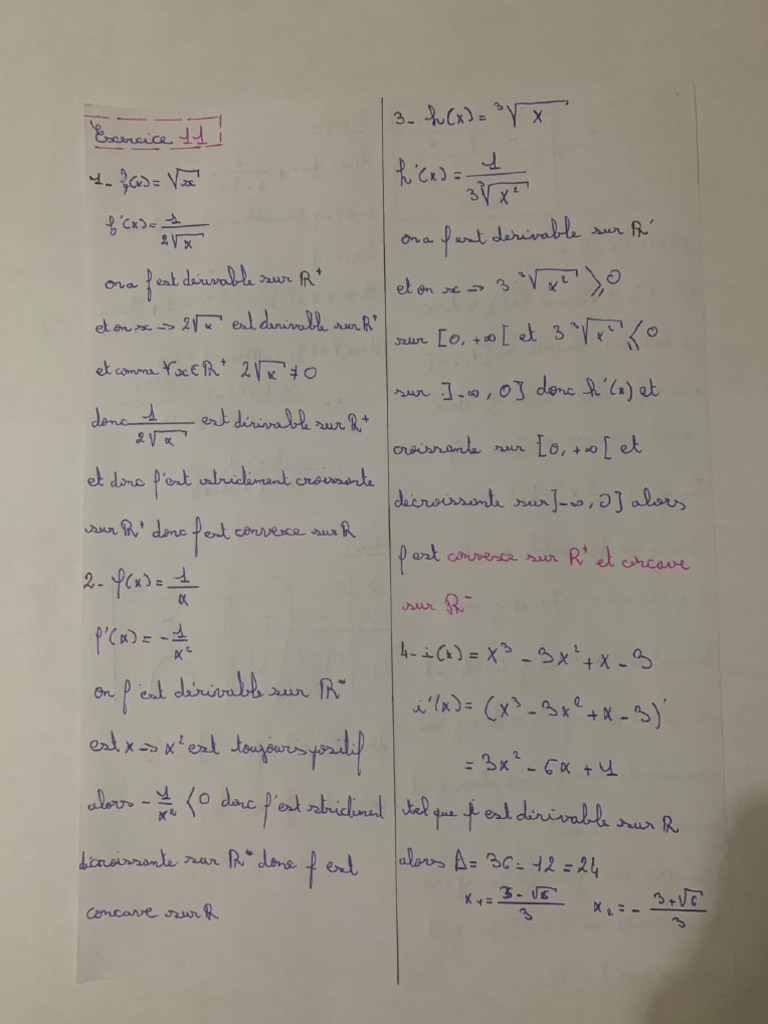 Exercice 11
1- f(x) = √x
f'(x) = 1/(2√x)
on a f est dérivable sur ℝ⁺
et on x → 2√x est derivable sur ℝ⁺
et comme ∀x∈ℝ⁺ 2√x ≠ 0
donc 1/(2√x) est dérivable sur ℝ⁺
et donc f'est strictement croissante
sur ℝ⁺ donc f est convexe sur ℝ
2- f(x) = 1/x
f'(x) = -1/x²
on f'est dérivable sur ℝ*
est x → x² est toujours positif
alors -1/x² < 0 donc f'est strictement
décroissante sur ℝ* donc f est
concave sur ℝ
3- h(x) = ³√x
h'(x) = 1/(3³√x²)
on a f est dérivable sur ℝ'
et on x → 3 ³√x² ⩾ 0
sur [0, +∞[ et 3 ³√x² ⩽ 0
sur ]-∞, 0] donc h'(x) et
croissante sur [0, +∞[ et
décroissante sur ]-∞, 0] alors
f est convexe sur ℝ⁺ et concave
sur ℝ⁻
4- i(x) = x³ - 3x² + x - 3
i'(x) = (x³ - 3x² + x - 3)'
= 3x² - 6x + 1
tel que f est dérivable sur ℝ
alors Δ = 36 - 12 = 24
x₁ = (3 - √6)/3 x₂ = - (3 + √6)/3